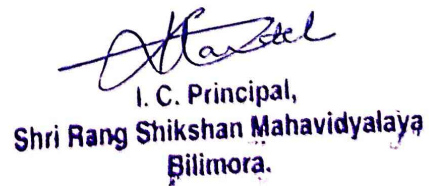 I. C. Principal,
Shri Rang Shikshan Mahavidyalaya
Bilimora.